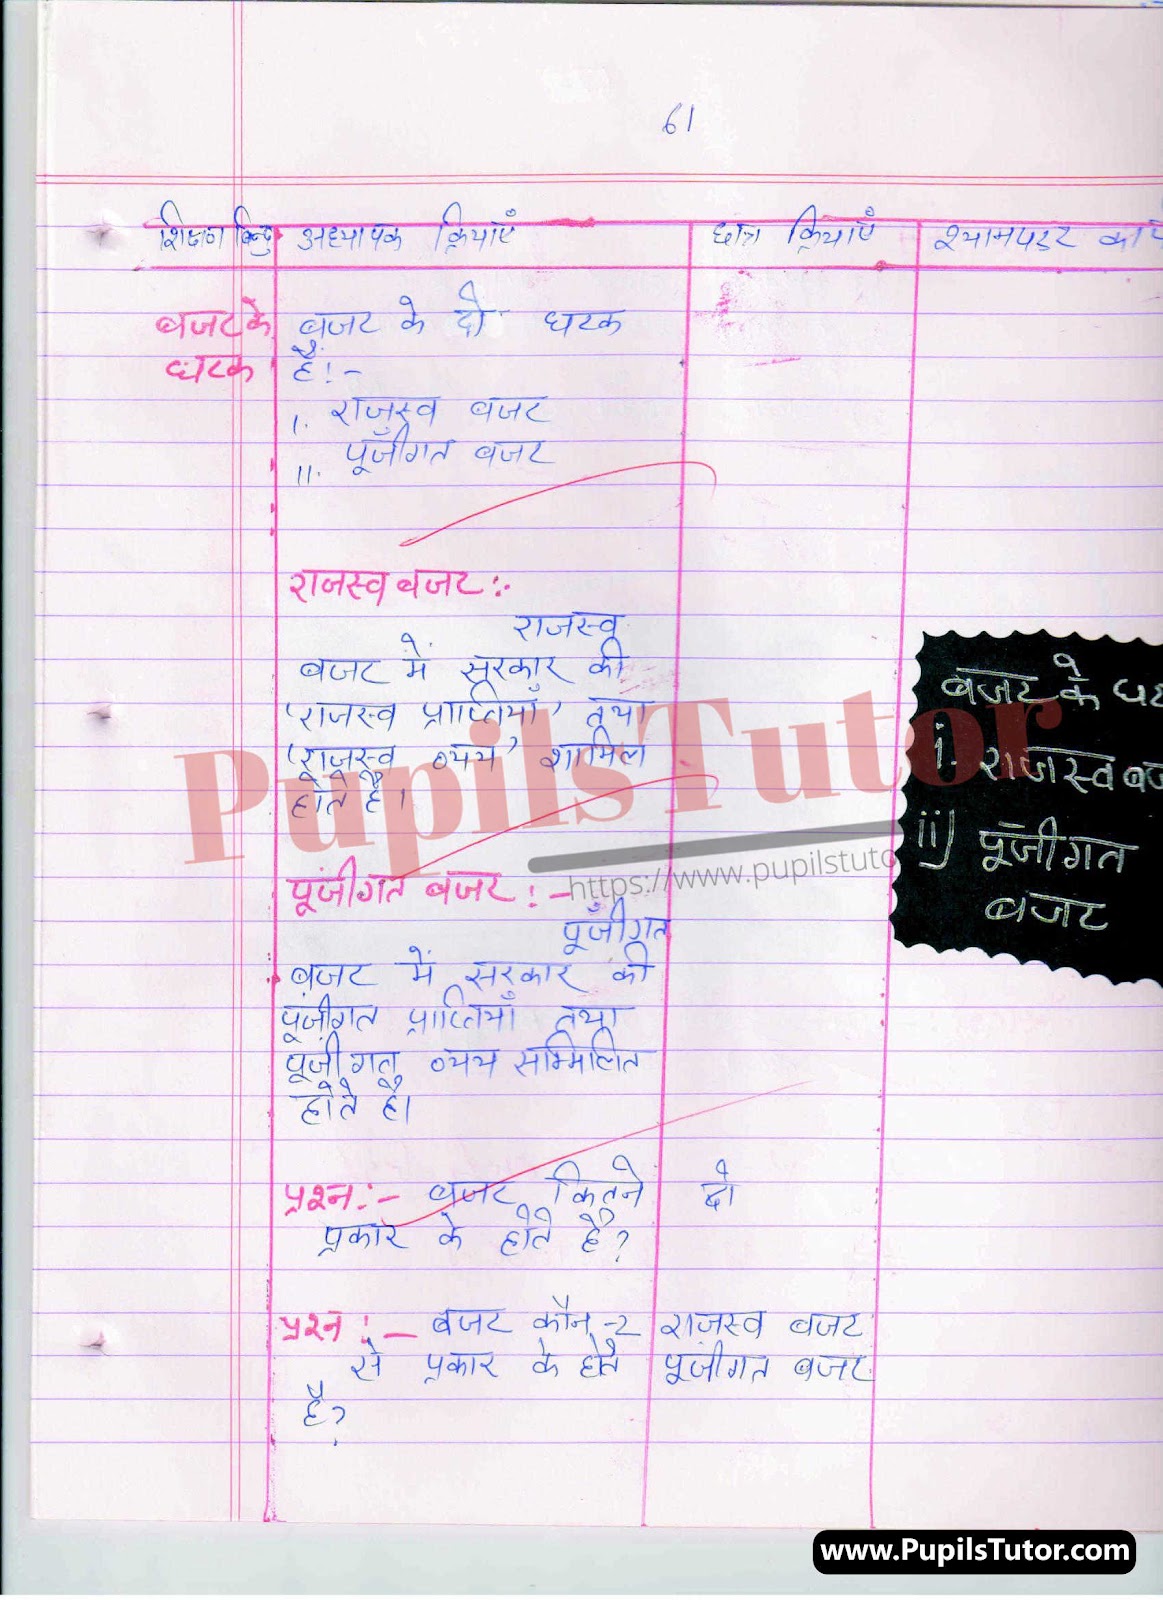 61
शिक्षण बिन्दु अध्यापक क्रियाएँ छात्र क्रियाएँ श्यामपट्ट
बजट के बजट के दो घटक
घटक हैं:-
I. राजस्व बजट
II. पूँजीगत बजट
राजस्व बजट :-
राजस्व
बजट में सरकार की
'राजस्व प्राप्तियाँ' तथा
'राजस्व व्यय' शामिल
होते है।
पूंजीगत बजट :-
पूँजीगत
बजट में सरकार की
पूंजीगत प्राप्तियाँ तथा
पूंजीगत व्यय सम्मिलित
होते है।
प्रश्न:- बजट कितने दो
प्रकार के होते है?
प्रश्न :- बजट कौन-2 राजस्व बजट
से प्रकार के होते पूंजीगत बजट
है?
बजट के
i. राजस्व
ii) पूँजीगत
बजट
PupilsTutor
https://www.pupilstuto
www.PupilsTutor.com